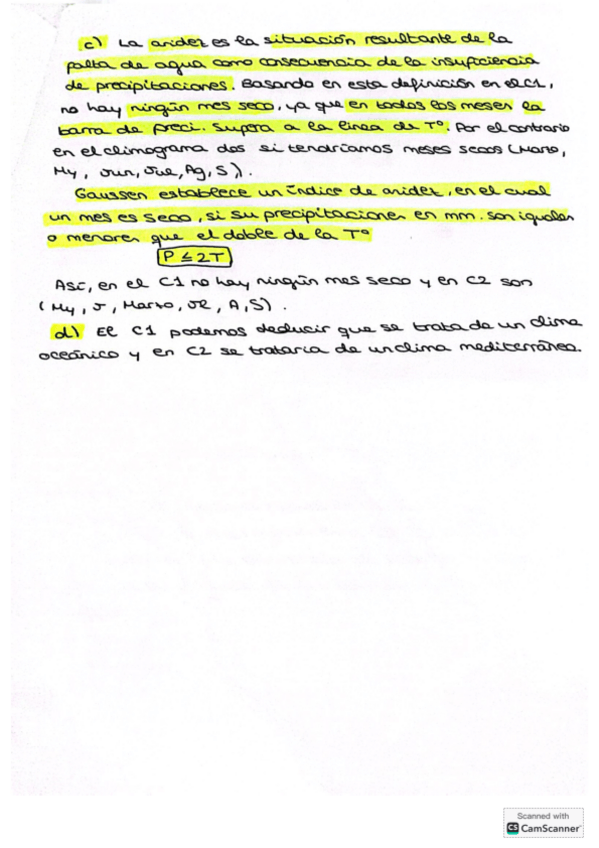 c) La aridez es la situación resultante de la
falta de agua como consecuencia de la insuficiencia
de precipitaciones. Basando en esta definición en el C1,
no hay ningún mes seco, ya que en todos los meses la
barra de preci. supera a la linea de Tº. Por el contrario
en el climograma dos si tendríamos meses secos (Marzo,
My, Jun, Jul, Ag, S).
Gaussen establece un índice de aridez, en el cual
un mes es seco, si su precipitaciones en mm. son iguales
o menores que el doble de la Tº
P ≤ 2T
Así, en el C1 no hay ningún mes seco y en C2 son
(My, J, Marzo, Jl, A, S).
d) El C1 podemos deducir que se trata de un clima
oceánico y en C2 se trataria de un clima mediterráneo.
Scanned with
CS CamScanner